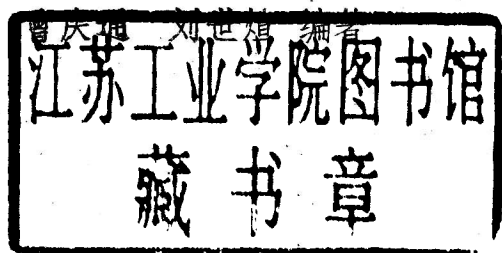 庆通 刘世 编著
江苏工业学院图书馆
藏书章